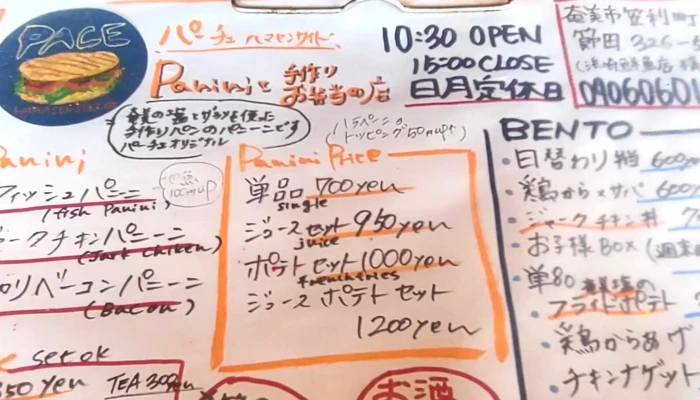 PACE
パーチェ ハマサンサイド
Paniniと 手作りお弁当の店
10:30 OPEN
15:00 CLOSE
日月定休日
奄美市笠利町
節田 326-
0906060
奄美の塩とザラメを使った
手作りパンのパニーニです
パーチェオリジナル
ハラペーニョ
トッピング50円up↑
Panini
フィッシュパニーニ
(fish Panini)
100円up
ークチキンパニーニ
(Jark chiken)
ロリベーコンパニーニ
(Bacon)
set ok
350 yen
TEA 300yen
Panini Price
単品 700yen
single
ジュースセット 950yen
juice
ポテトセット 1000yen
frenchfries
ジュース ポテト セット
1200yen
お酒
BENTO
・日替わり弁当 600
・鶏からxサバ 600
・ジャークチキン丼
・お子様BOX (週末
・単品 奄美塩の
フライドポテト
・鶏からあげ
・チキンナゲット